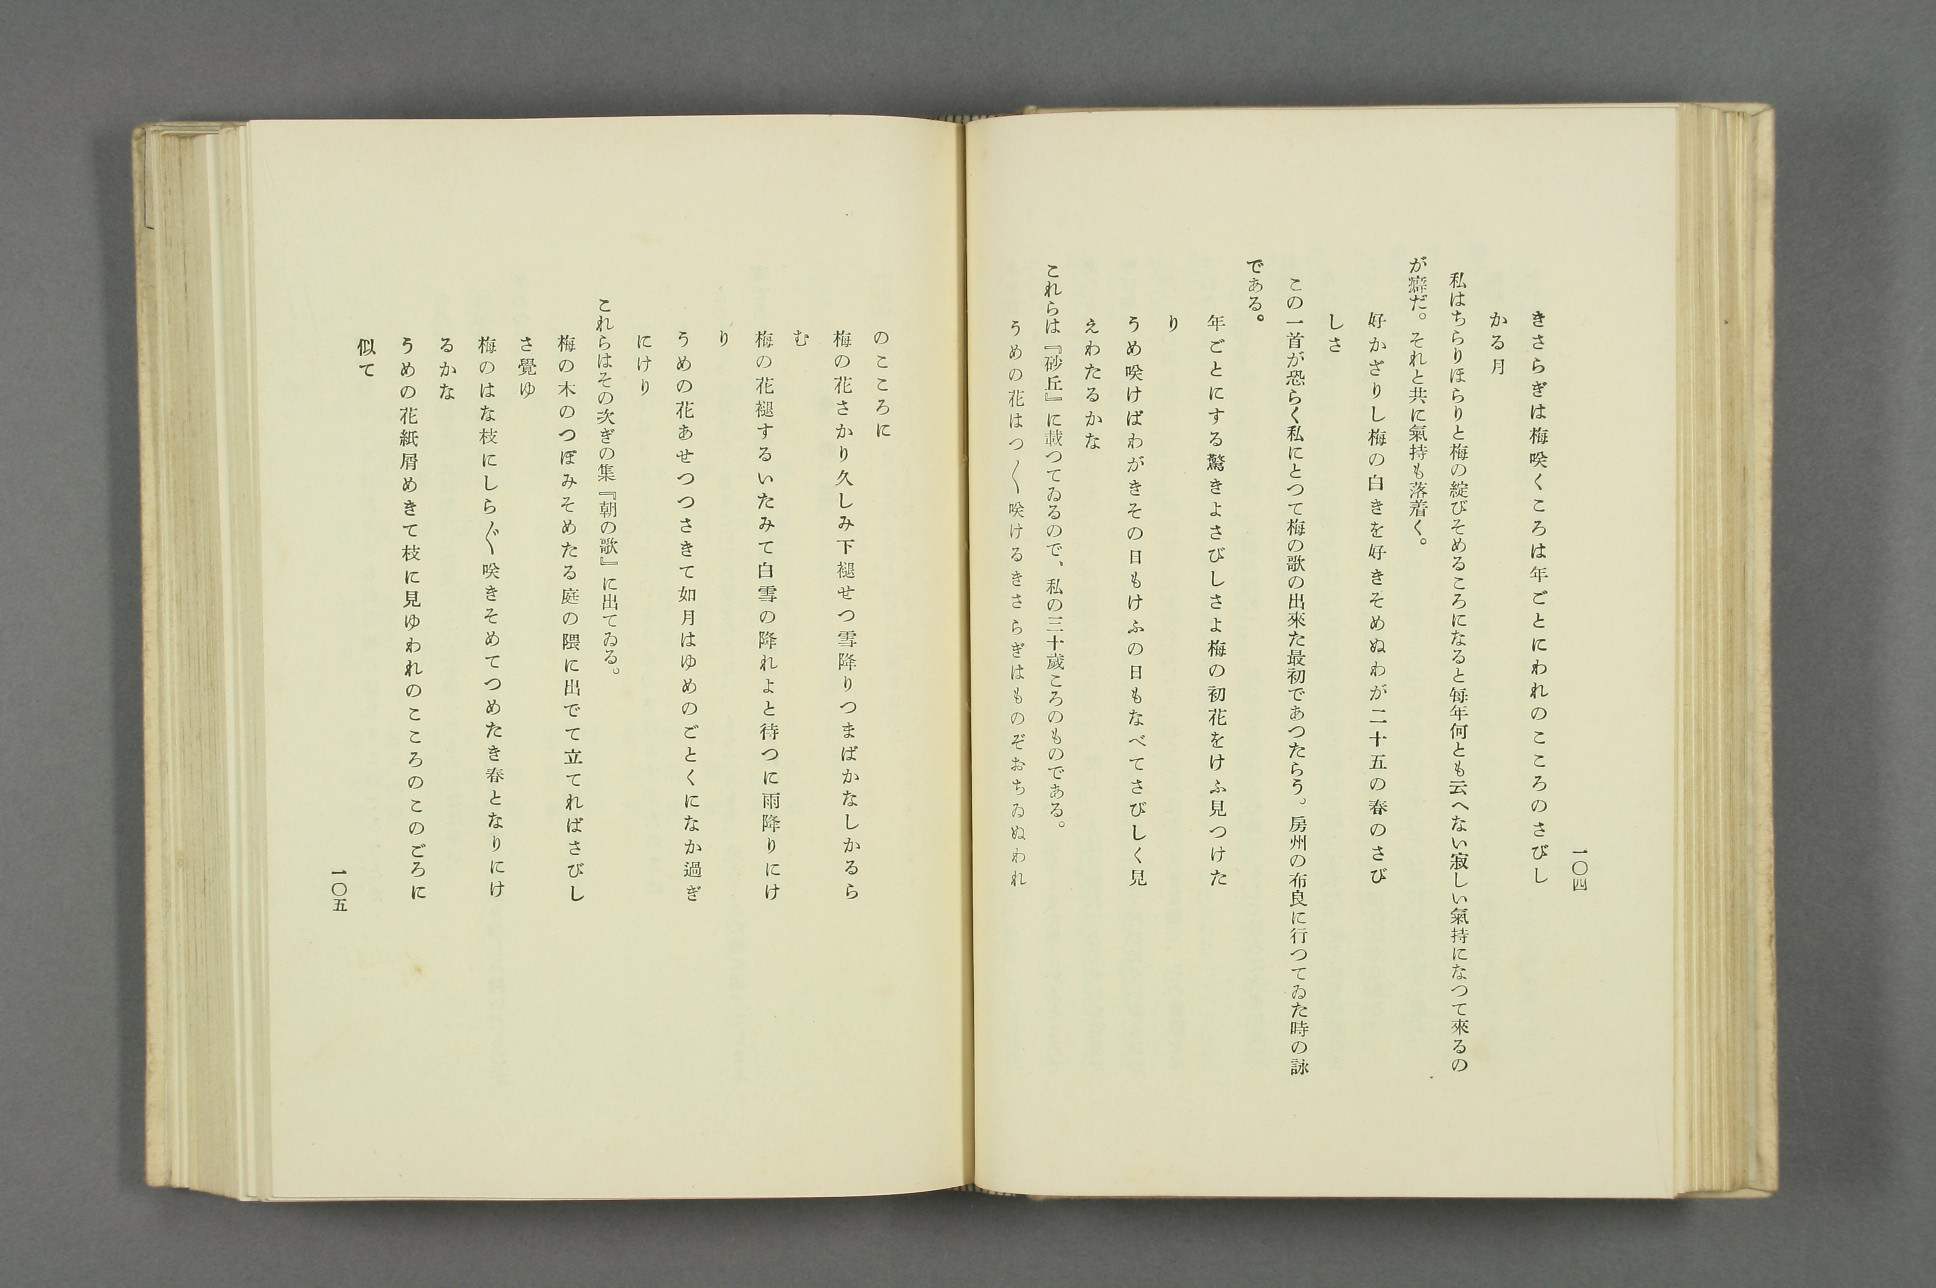 一〇四
きさらぎは梅咲くころは年ごとにわれのこころのさびし
かる月
私はちらりほらりと梅の綻びそめるころになると毎年何とも云へない寂しい氣持になつて來るの
が癖だ。それと共に氣持も落着く。
好かざりし梅の白きを好きそめぬわが二十五の春のさび
しさ
この一首が恐らく私にとつて梅の歌の出來た最初であつたらう。房州の布良に行つてゐた時の詠
である。
年ごとにする驚きよさびしさよ梅の初花をけふ見つけた
り
うめ咲けばわがきその日もけふの日もなべてさびしく見
えわたるかな
これらは『砂丘』に載つてゐるので、私の三十歲ころのものである。
うめの花はつ〳〵咲けるきさらぎはものぞおちゐぬわれ
のこころに
梅の花さかり久しみ下褪せつ雪降りつまばかなしかるら
む
梅の花褪するいたみて白雪の降れよと待つに雨降りにけ
り
うめの花あせつつさきて如月はゆめのごとくになか過ぎ
にけり
これらはその次ぎの集『朝の歌』に出てゐる。
梅の木のつぼみそめたる庭の隈に出でて立てればさびし
さ覺ゆ
梅のはな枝にしら〴〵咲きそめてつめたき春となりにけ
るかな
うめの花紙屑めきて枝に見ゆわれのこころのこのごろに
似て
一〇五